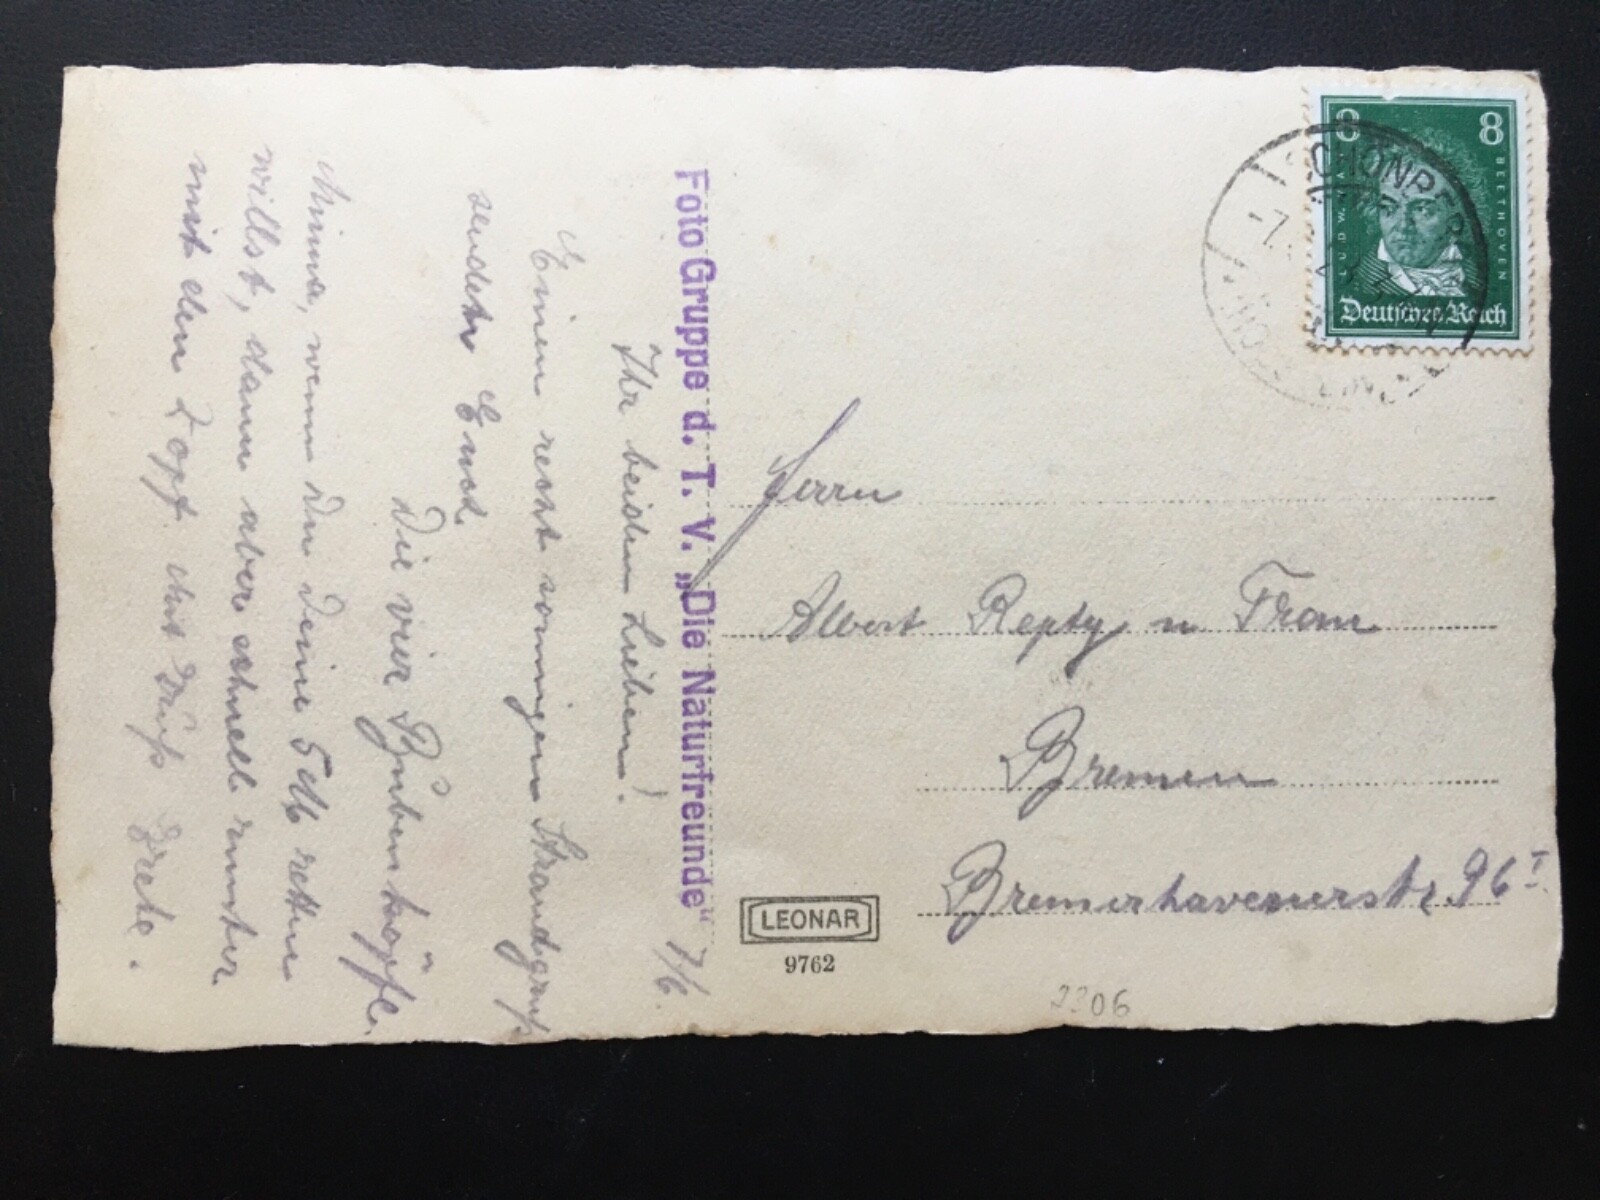 Foto Gruppe d. T. V. „Die Naturfreunde“
7/6.
Ihr beiden Lieben!
Einen recht sonnigen Strandgruß
sendet Euch
Die vier Bubenköpfe.
Minna, wenn du deine 5 M retten
willst, dann aber schnell runter
mit den Zopf. Gruß Grete.
8 8
LUDW. VAN BEETHOVEN
Deutsches Reich
SCHÖNBERG
7.
HOLSTEIN
Herrn
Albert u Frau
Bremen
Bremerhavenerstr. 96 I
LEONAR
9762
2306